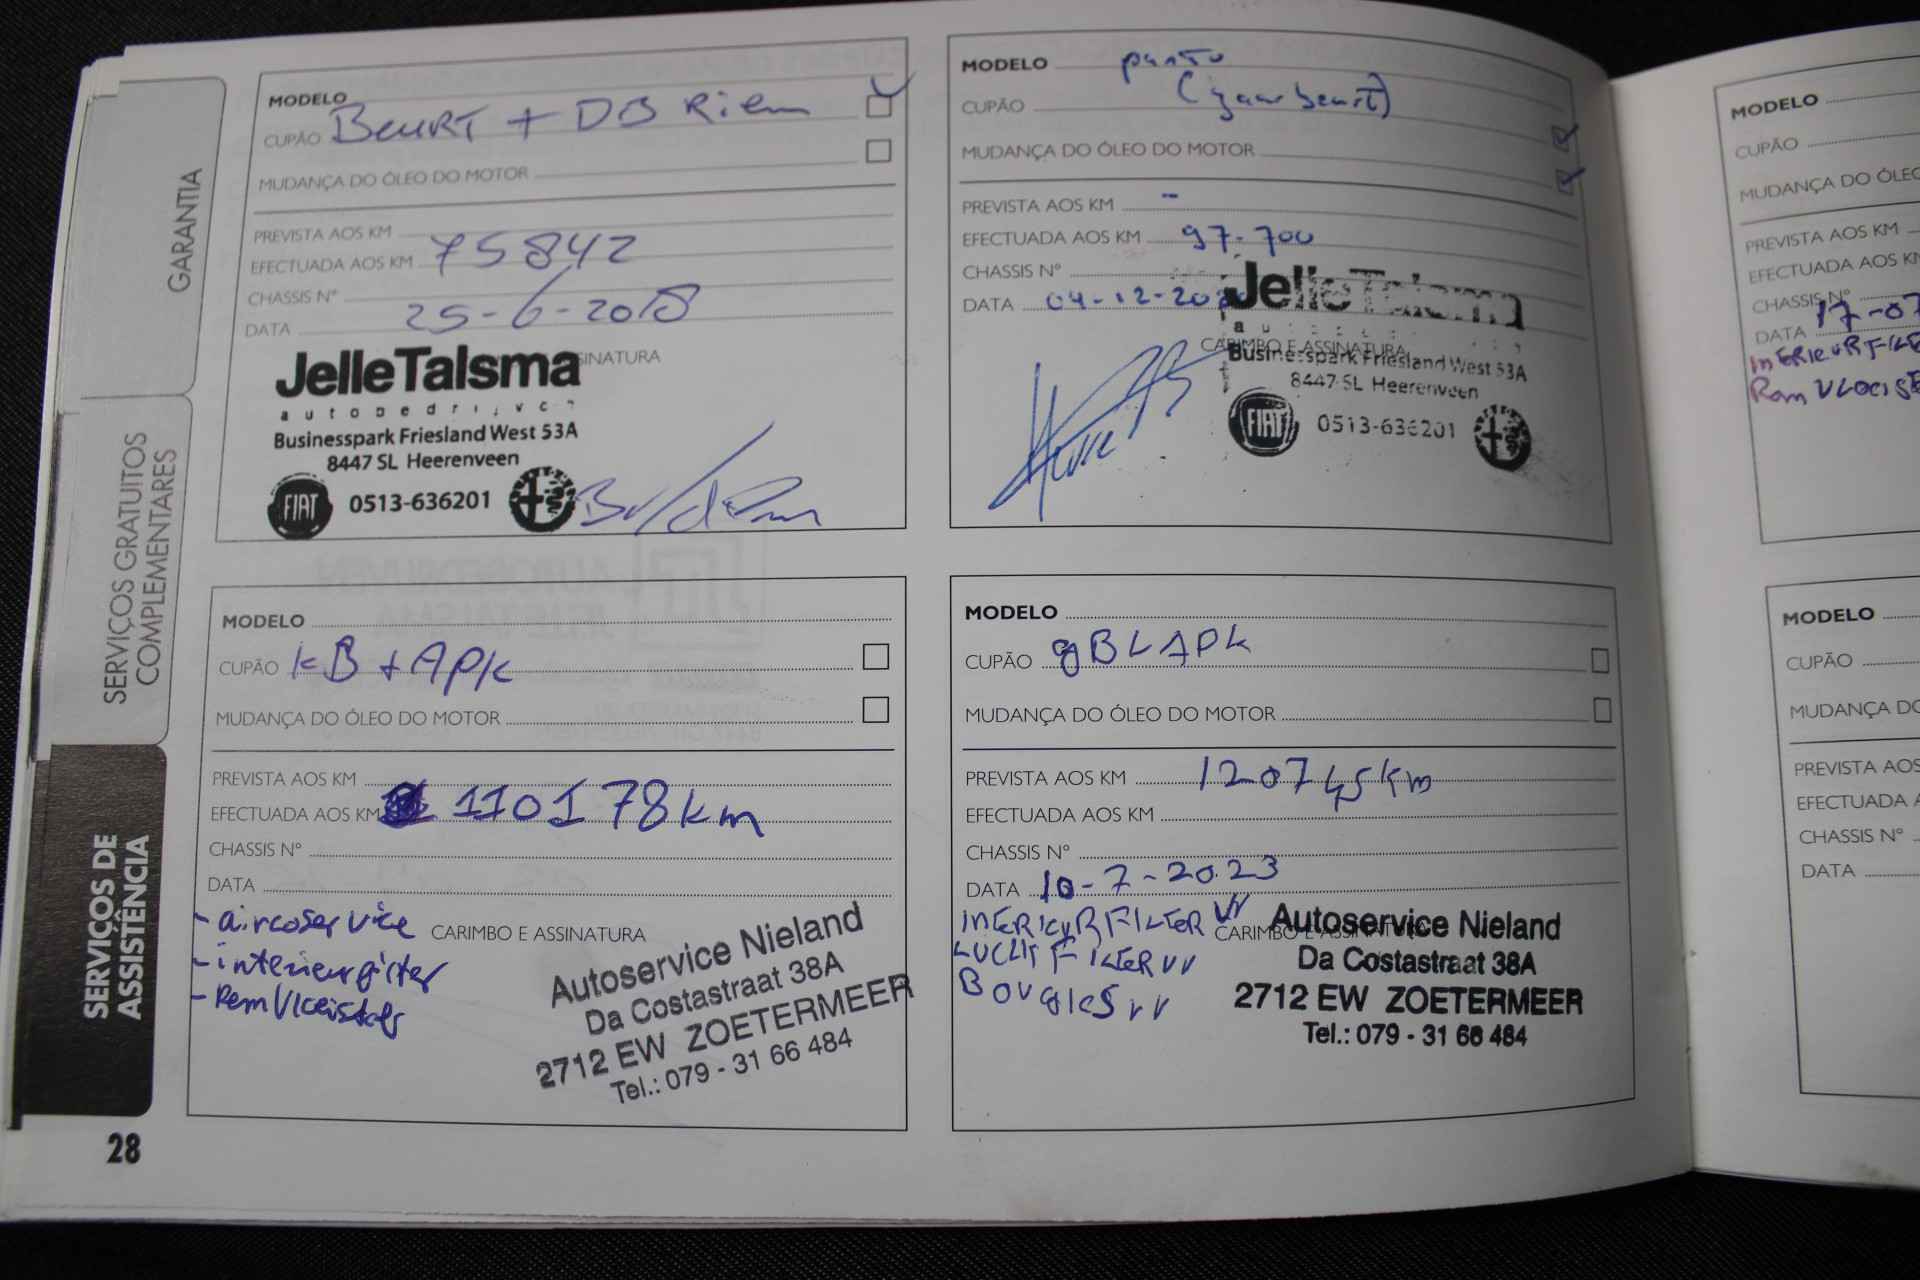 GARANTIA
SERVIÇOS GRATUITOS
COMPLEMENTARES
SERVIÇOS DE
ASSISTÊNCIA
28
MODELO
CUPÃO BEURT + DB Riem
MUDANÇA DO ÓLEO DO MOTOR
PREVISTA AOS KM
EFECTUADA AOS KM 75842
CHASSIS Nº
DATA 25-6-2018
SINATURA
JelleTalsma
autobedrijven
Businesspark Friesland West 53A
8447 SL Heerenveen
FIAT 0513-636201
MODELO punto
CUPÃO (jaarbeurt)
MUDANÇA DO ÓLEO DO MOTOR
PREVISTA AOS KM -
EFECTUADA AOS KM 97.700
CHASSIS Nº
DATA 04-12-20
JelleTalsma
CARIMBO E ASSINATURA
Businesspark Friesland West 53A
8447 SL Heerenveen
FIAT 0513-636201
MODELO
CUPÃO KB + APK
MUDANÇA DO ÓLEO DO MOTOR
PREVISTA AOS KM
EFECTUADA AOS KM 110178 km
CHASSIS Nº
DATA
- aircoservice
CARIMBO E ASSINATURA
- interieurfilter
- Remvloeistof
Autoservice Nieland
Da Costastraat 38A
2712 EW ZOETERMEER
Tel.: 079 - 31 66 484
MODELO
CUPÃO gB LAPK
MUDANÇA DO ÓLEO DO MOTOR
PREVISTA AOS KM 120745 km
EFECTUADA AOS KM
CHASSIS Nº
DATA 10-7-2023
INTERIEURFILTER VV
CARIMBO E ASSINATURA
LUCHTFILTER VV
BOUGIES VV
Autoservice Nieland
Da Costastraat 38A
2712 EW ZOETERMEER
Tel.: 079 - 31 66 484
MODELO
CUPÃO
MUDANÇA DO ÓLEO
PREVISTA AOS KM
EFECTUADA AOS KM
CHASSIS Nº
DATA 17-07
INTERIEURFILTE
Rem VLOEISt
MODELO
CUPÃO
MUDANÇA DO
PREVISTA AOS
EFECTUADA A
CHASSIS Nº
DATA